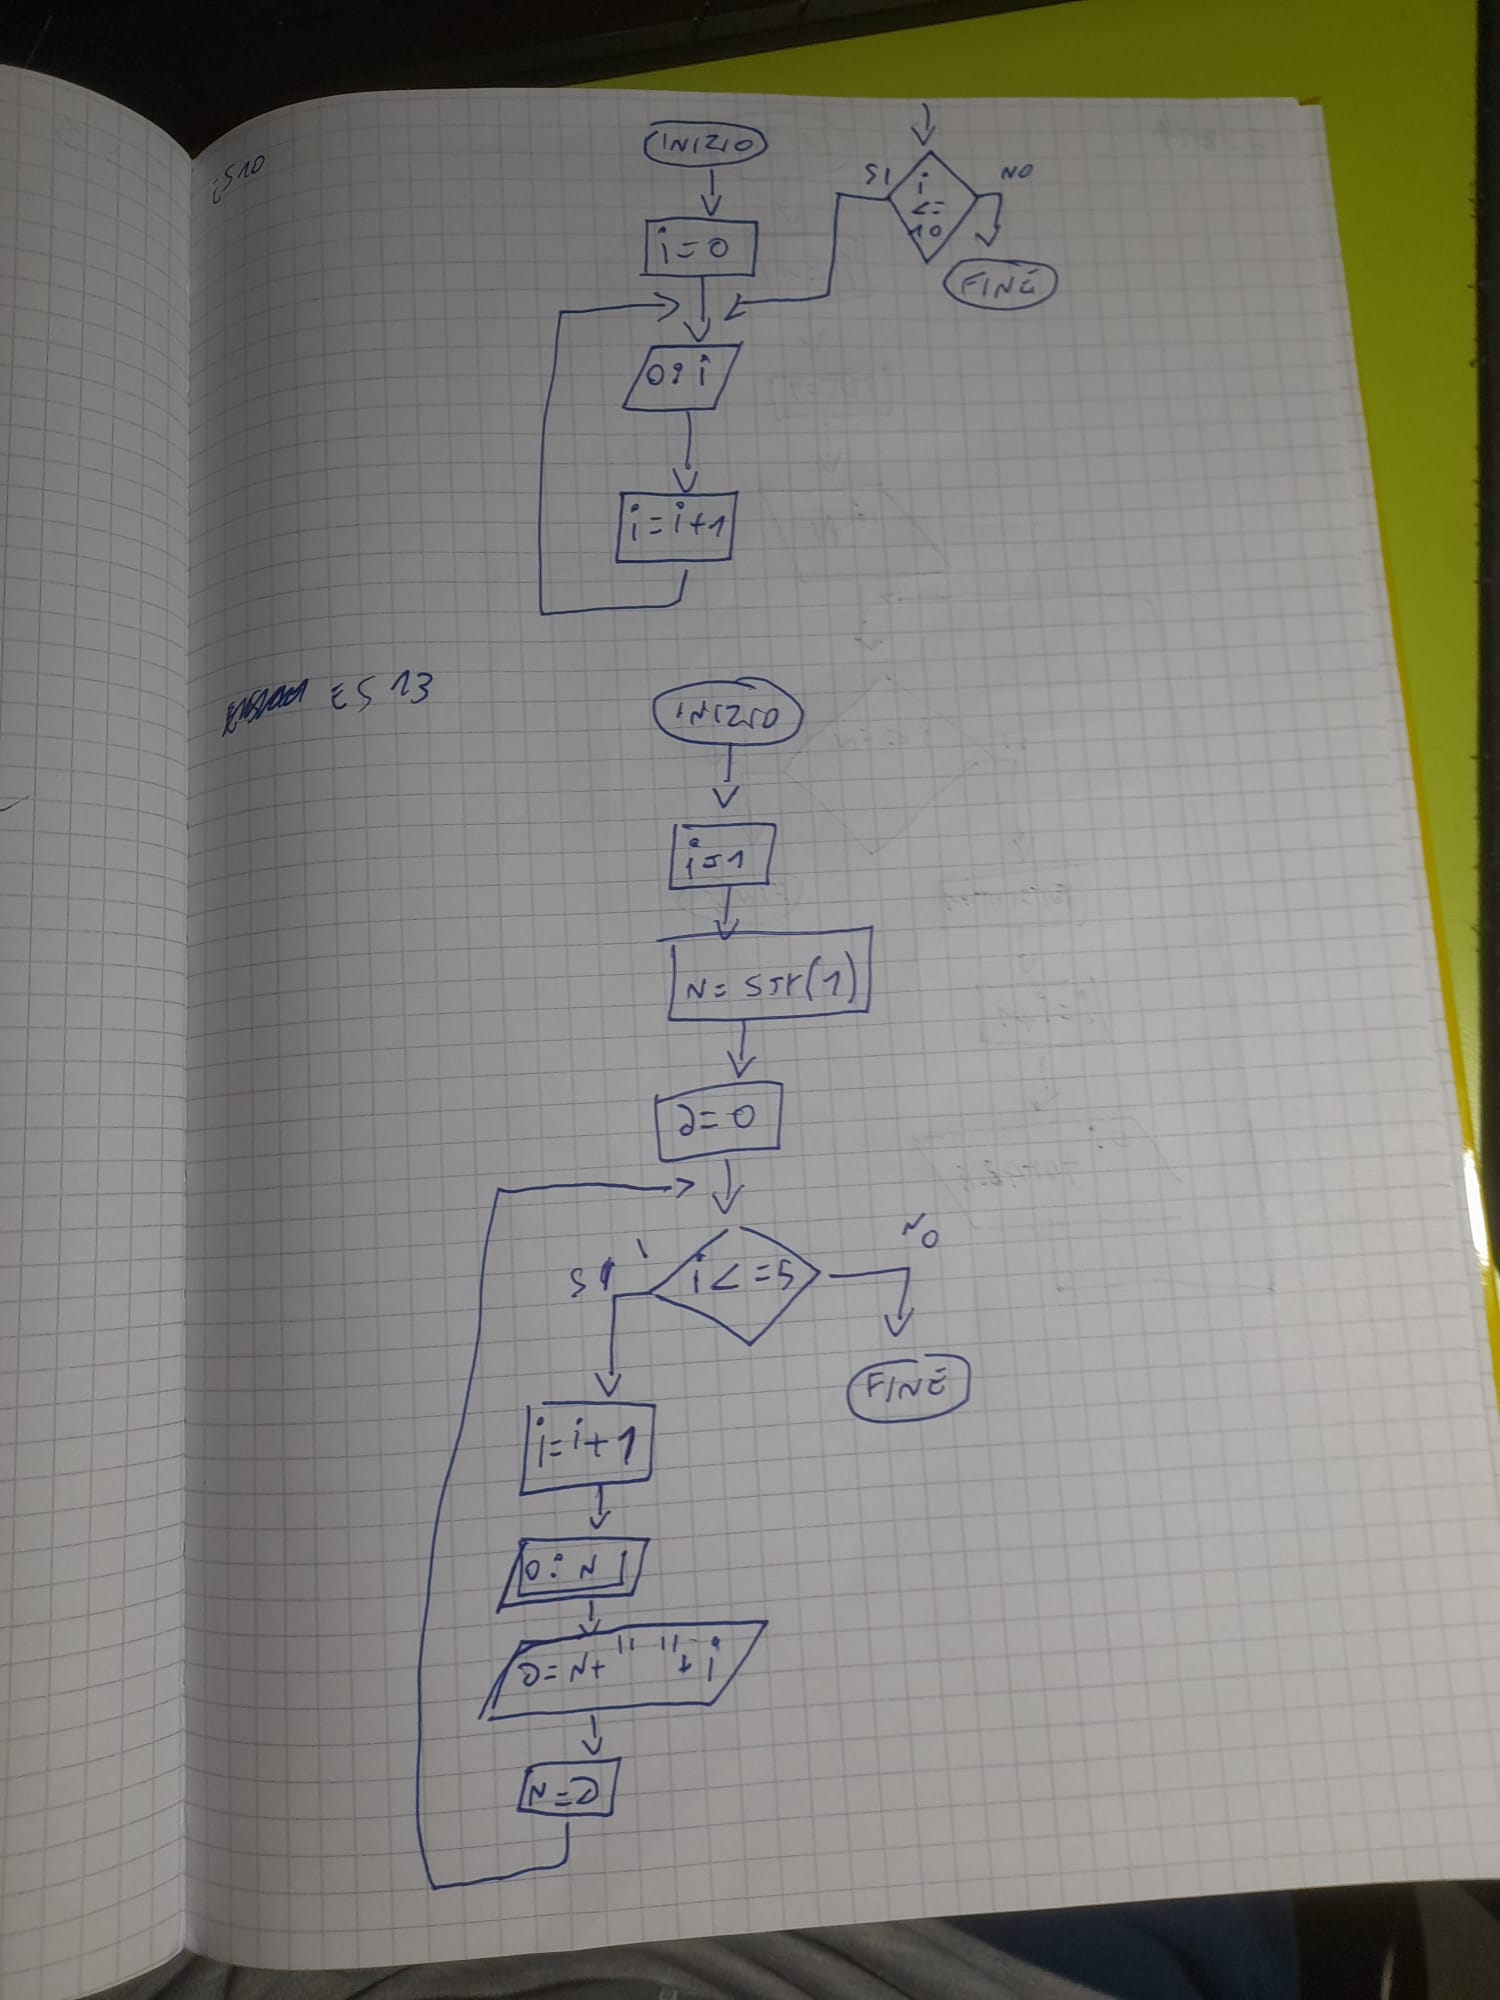 ES10
INIZIO
i=0
O: i
i=i+1
i
<=
10
SI
NO
FINE
ES 13
INIZIO
i=1
N= str(1)
a=0
i<=5
SI
NO
FINE
i=i+1
O: N
a=N+" "+i
N=a